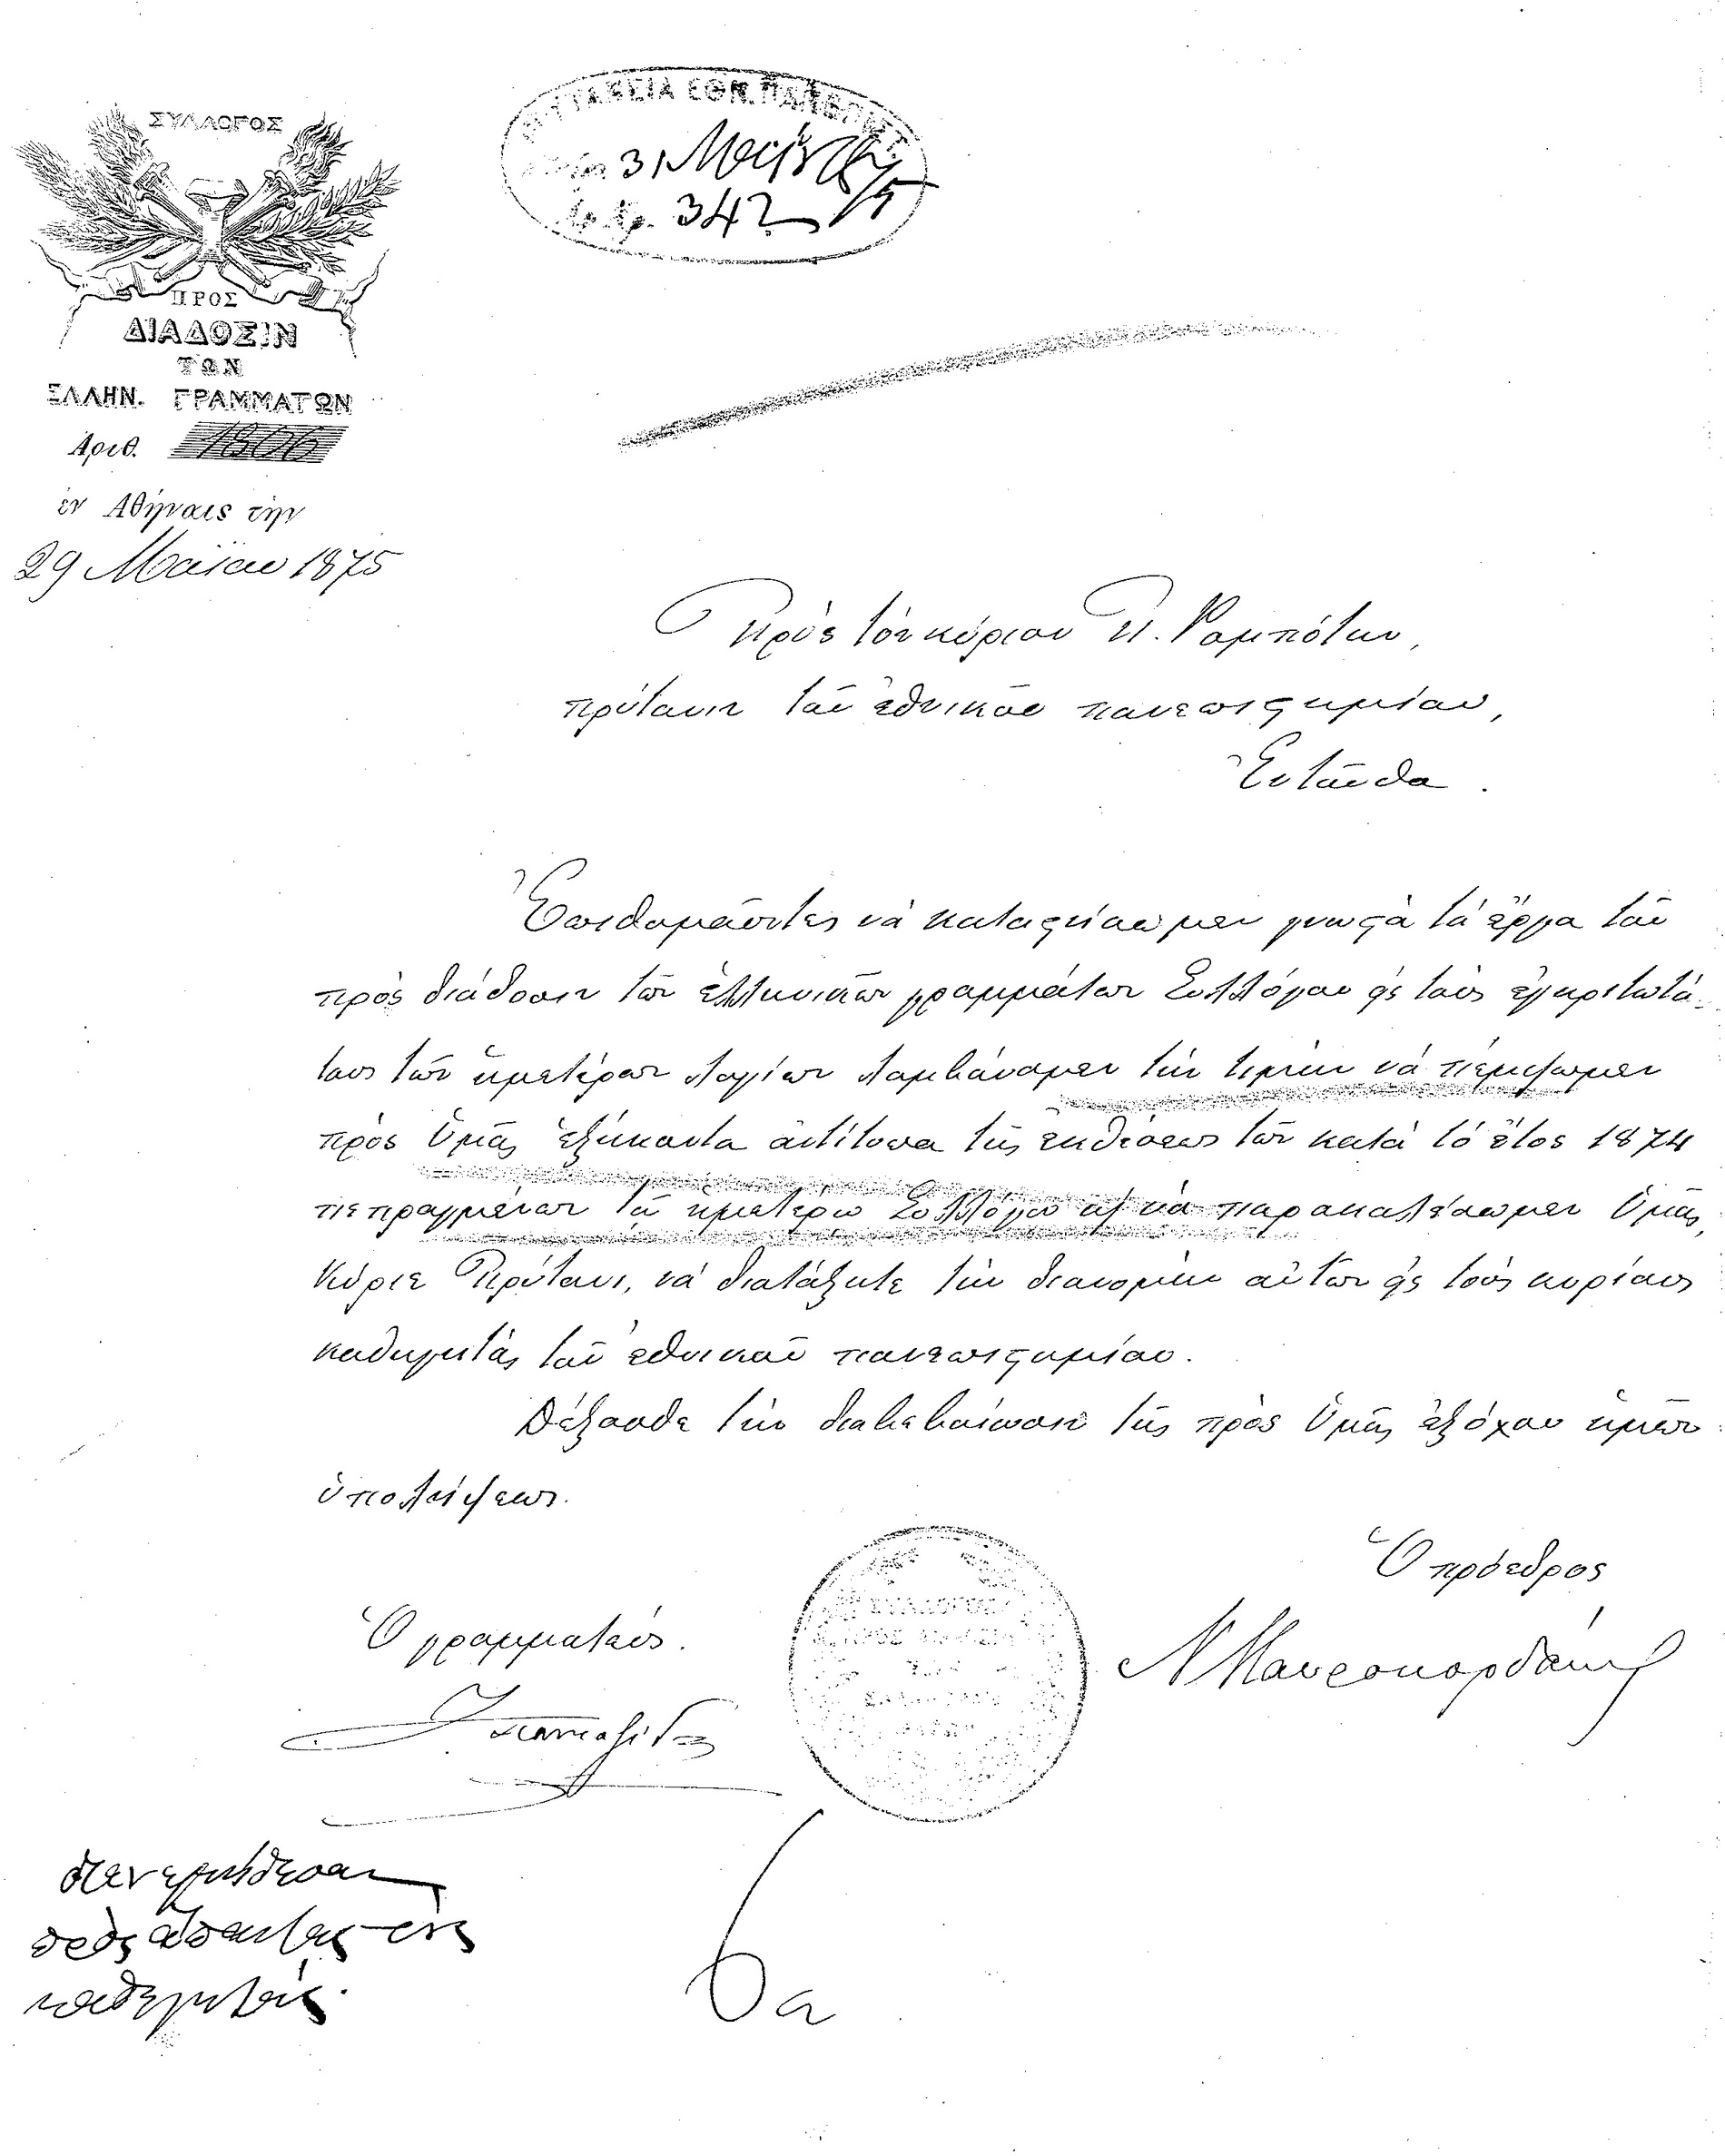 ΣΥΛΛΟΓΟΣ
ΠΡΟΣ
ΔΙΑΔΟΣΙΝ
ΤΩΝ
ΕΛΛΗΝ. ΓΡΑΜΜΑΤΩΝ
Ἀριθ. 1806
ἐν Ἀθήναις τὴν
29 Μαΐου 1875
ΠΡΥΤΑΝΕΙΑ ΕΘΝ. ΠΑΝΕΠΙΣΤ
31 Μαΐου 75
Ἀρ. Πρ. 342
Πρὸς τὸν κύριον Π. Ῥομπότην,
πρύτανιν τοῦ ἐθνικοῦ πανεπιστημίου,
Ἐνταῦθα.
Ἐπιθυμοῦντες νὰ καταστήσωμεν γνωστὰ τὰ ἔργα τοῦ
πρὸς διάδοσιν τῶν ἑλληνικῶν γραμμάτων Συλλόγου εἰς τοὺς ἐγκριτωτά-
τους τῶν ἡμετέρων λογίων λαμβάνομεν τὴν τιμὴν νὰ πέμψωμεν
πρὸς Ὑμᾶς ἑξήκοντα ἀντίτυπα τῆς ἐκθέσεως τῶν κατὰ τὸ ἔτος 1874
πεπραγμένων τῷ ἡμετέρῳ Συλλόγῳ καὶ νὰ παρακαλέσωμεν Ὑμᾶς,
Κύριε Πρύτανι, νὰ διατάξητε τὴν διανομὴν αὐτῶν εἰς τοὺς κυρίους
καθηγητὰς τοῦ ἐθνικοῦ πανεπιστημίου.
Δέξασθε τὴν διαβεβαίωσιν τῆς πρὸς Ὑμᾶς ἐξόχου ἡμῶν
ὑπολήψεως.
Ὁ πρόεδρος
Ν Μαυροκορδάτος
Ὁ γραμματεύς.
ΣΥΛΛΟΓΟΣ
ΠΡΟΣ ΔΙΑΔΟΣΙΝ
ΤΩΝ
διενεμήθησαν
πρὸς ἅπαντας τοὺς
καθηγητάς.